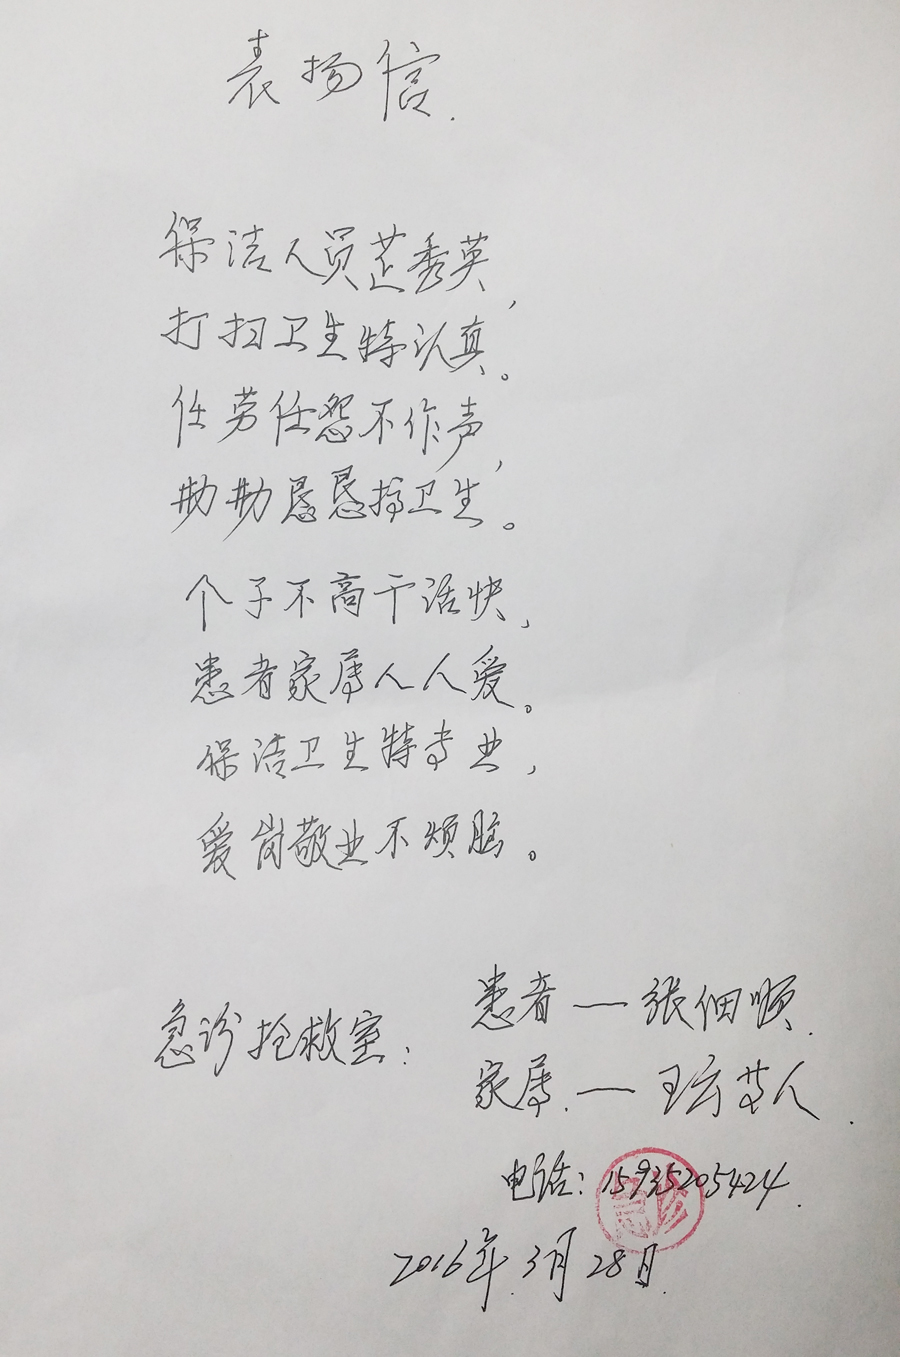 表扬信.
保洁人员芷秀英,
打扫卫生特认真。
任劳任怨不作声,
勤勤恳恳搞卫生。
个子不高干活快,
患者家属人人爱。
保洁卫生特专业,
爱岗敬业不烦脑。
急诊抢救室:
患者——张佃顺.
家属.——王
电话:15935205424.
2016年.3月28日.